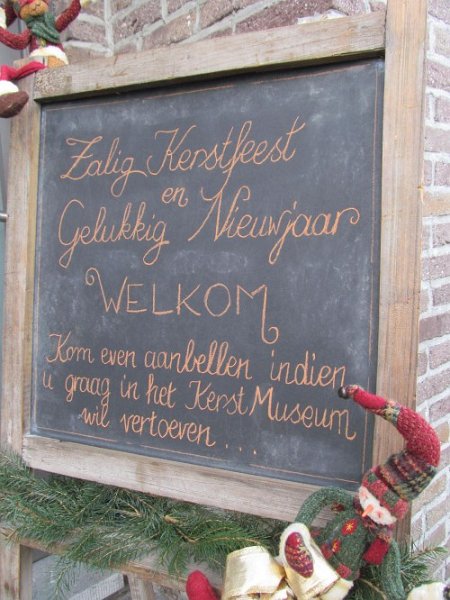 Zalig Kerstfeest
en
Gelukkig Nieuwjaar
WELKOM
Kom even aanbellen indien
u graag in het Kerst Museum
wil vertoeven ...